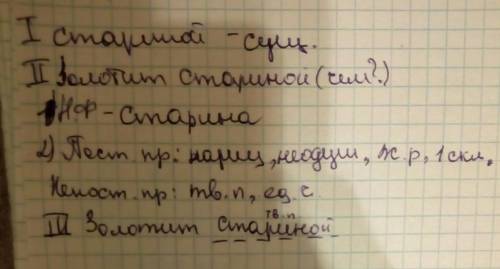 I Стариной - сущ.
II Золотит стариной (чем?)
1) Нф - старина
2) Пост. пр: нариц, неодуш, ж.р, 1 скл,
Непост. пр: тв. п, ед. с.
тв. п
III Золотит стариной